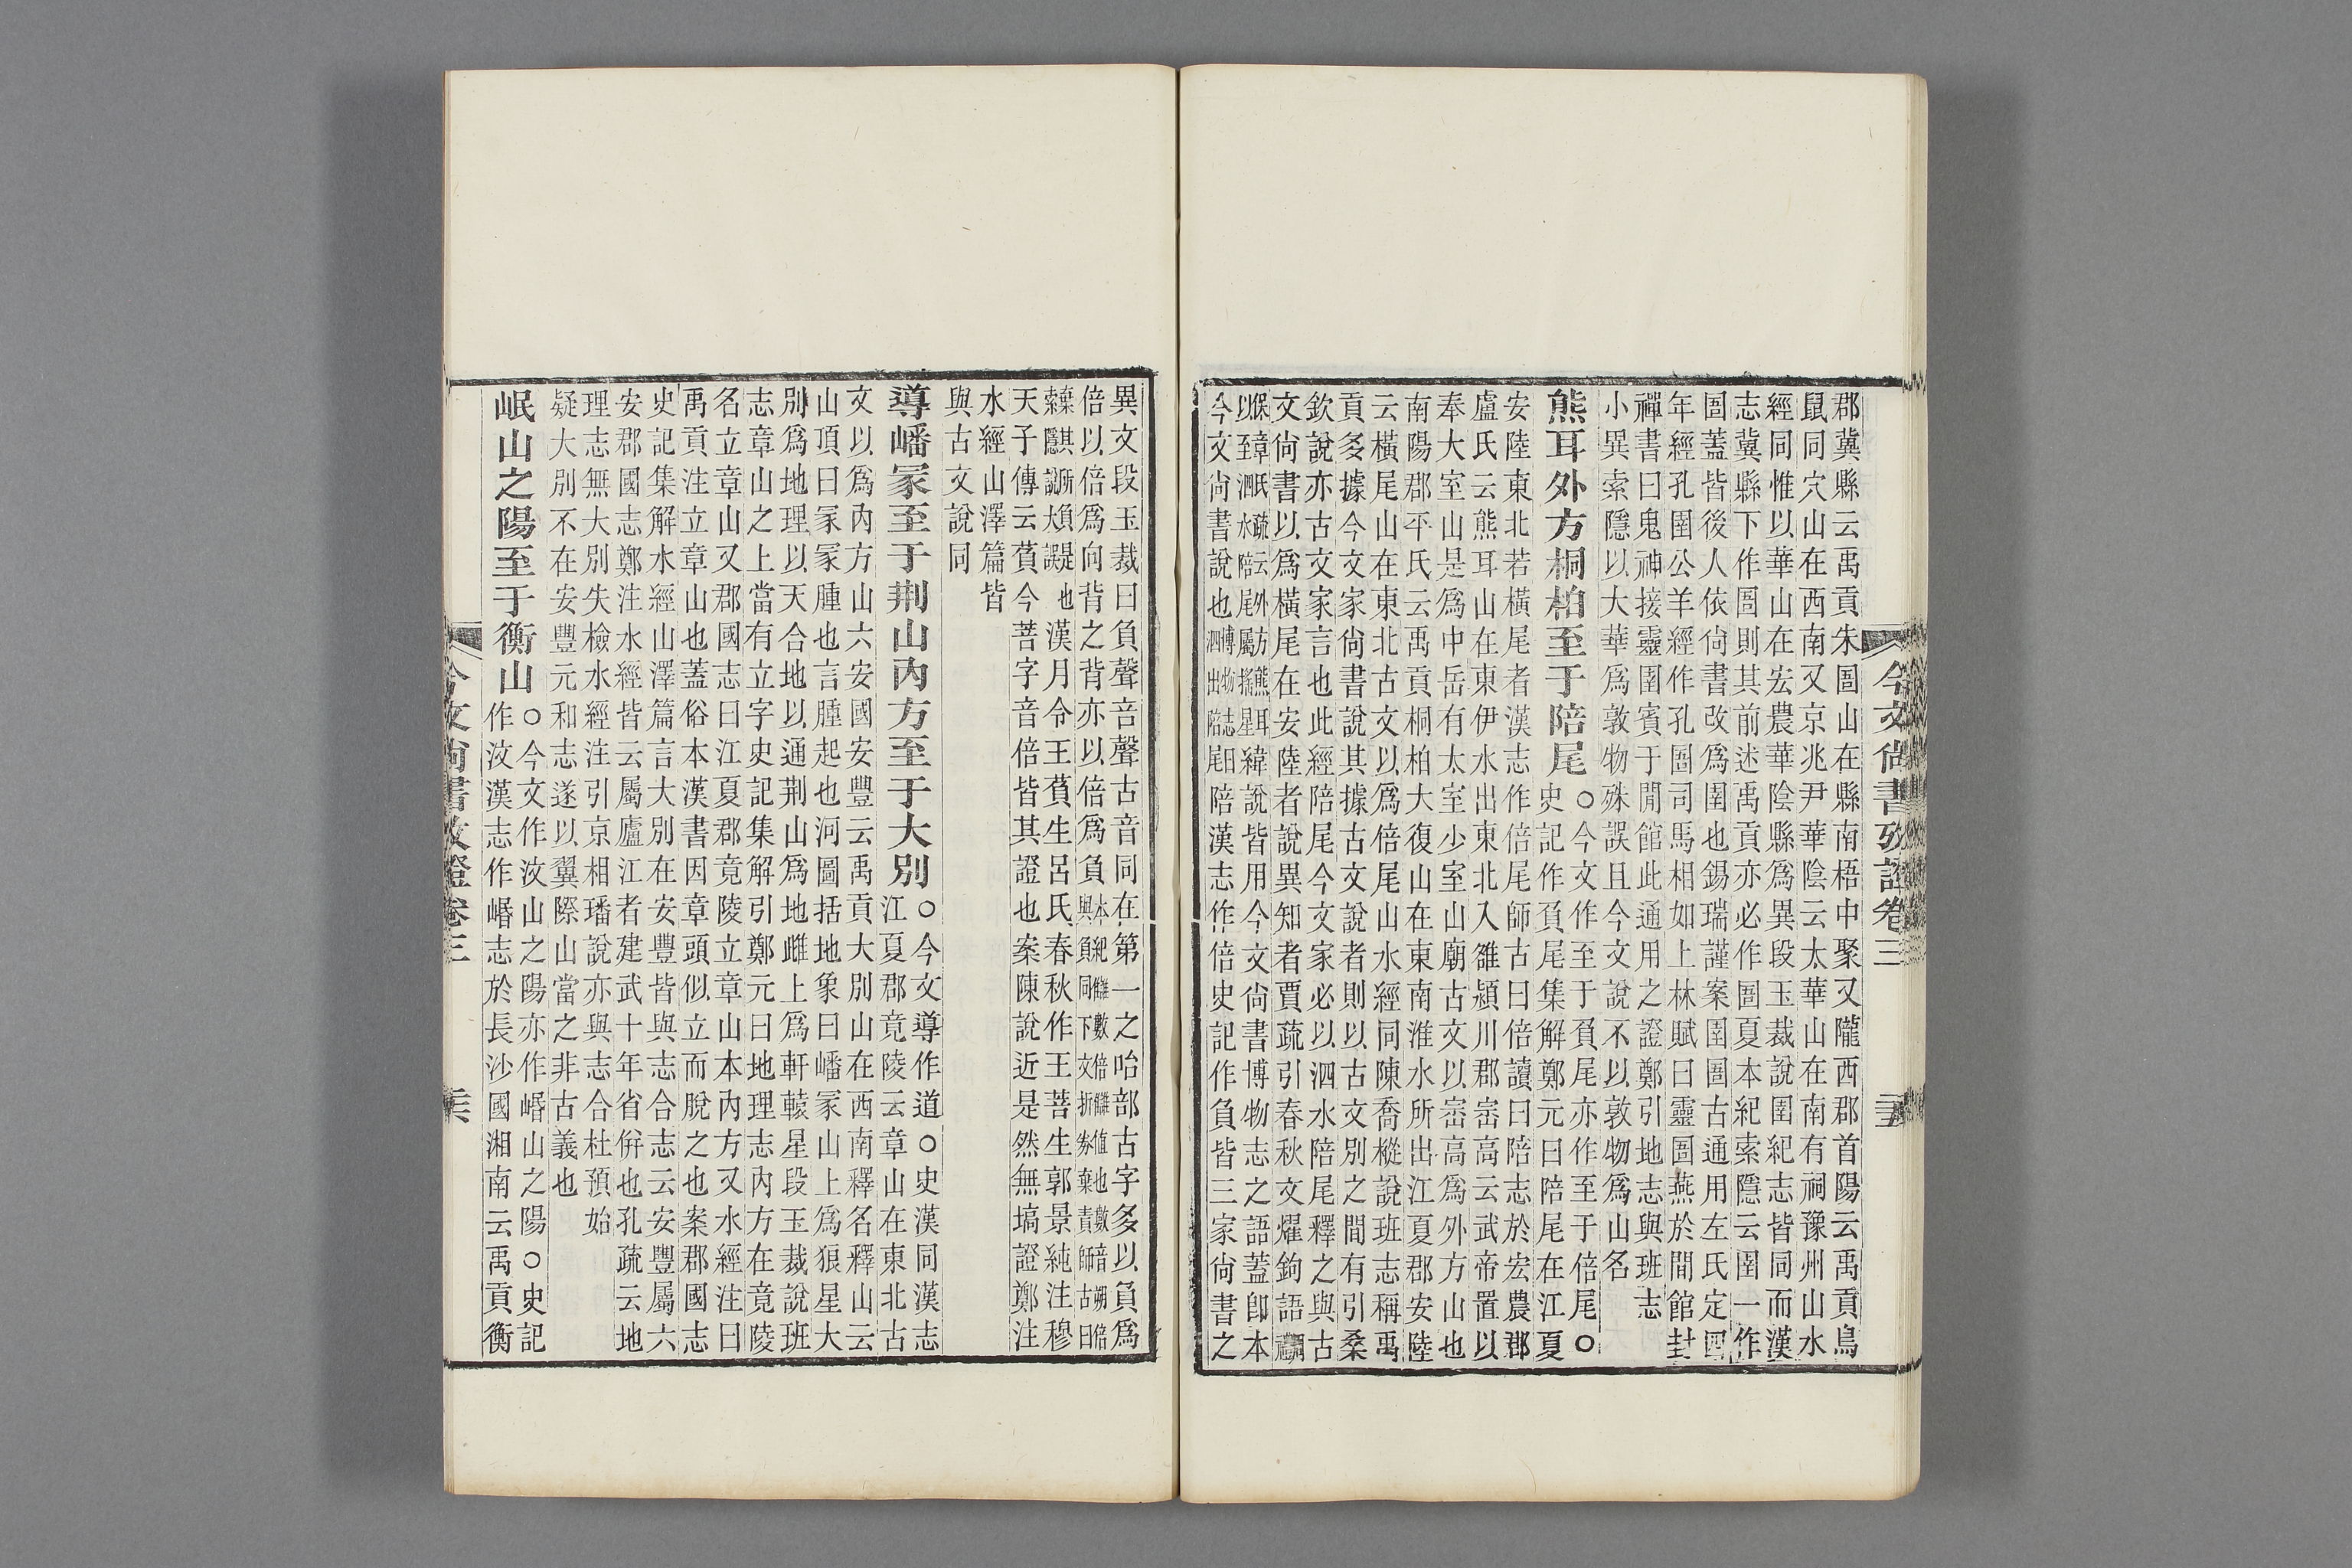 今文尚書攷證卷三
郡冀縣云禹貢朱圄山在縣南梧中聚又隴西郡首陽云禹貢鳥
鼠同穴山在西南又京兆尹華陰云太華山在南有祠豫州山水
經同惟以華山在宏農華陰縣爲異段玉裁說圉紀志皆同而漢
志冀縣下作圄則其前述禹貢亦必作圄夏本紀索隱云圉一作
圄蓋皆後人依尙書改爲圉也錫瑞謹案圉圄古通用左氏定四
年經孔圉公羊經作孔圄司馬相如上林賦曰靈圄燕於閒館封
禪書曰鬼神接靈圉賓于閒館此通用之證鄭引地志與班志
小異索隱以大華爲敦物殊誤且今文說不以敦物爲山名
熊耳外方桐柏至于陪尾○今文作至于負尾亦作至于倍尾○
史記作負尾集解鄭元曰陪尾在江夏
安陸東北若橫尾者漢志作倍尾師古曰倍讀曰陪志於宏農郡
盧氏云熊耳山在東伊水出東北入雒潁川郡崈高云武帝置以
奉大室山是爲中岳有太室少室山廟古文以崈高爲外方山也
南陽郡平氏云禹貢桐柏大復山在東南淮水所出江夏郡安陸
云橫尾山在東北古文以爲倍尾山水經同陳喬樅說班志稱禹
貢多據今文家尙書說其據古文說者則以古文別之間有引桑
欽說亦古文家言也此經陪尾今文家必以泗水陪尾釋之與古
文尙書以爲橫尾在安陸者說異知者賈疏引春秋文燿鉤語
保章氏疏云外方熊耳
以至泗水陪尾屬搖星緯說皆用今文尙書博物志之語蓋卽本
今文尙書說也博物志曰泗出陪尾陪漢志作倍史記作負皆三家尙書之
異文段玉裁曰負聲咅聲古音同在第一之咍部古字多以負爲
倍以倍爲向背之背亦以倍爲負本紀讎數倍讎值也數音朔倍
與負同下文折券棄責師古曰
索隱說大誤也漢月令王萯生呂氏春秋作王菩生郭景純注穆
天子傳云萯今菩字音倍皆其證也案陳說近是然無塙證鄭注
水經山澤篇皆
與古文說同
導嶓冢至于荆山內方至于大別○今文導作道○史漢同漢志
江夏郡竟陵云章山在東北古
文以爲內方山六安國安豐云禹貢大別山在西南釋名釋山云
山頂曰冢冢腫也言腫起也河圖括地象曰嶓冢山上爲狼星大
別爲地理以天合地以通荆山爲地雌上爲軒轅星段玉裁說班
志章山之上當有立字史記集解引鄭元曰地理志內方在竟陵
名立章山又郡國志曰江夏郡竟陵立章山本內方又水經注曰
禹貢注立章山也蓋俗本漢書因章頭似立而脫之也案郡國志
史記集解水經山澤篇言大別在安豐皆與志合志云安豐屬六
安郡國志鄭注水經皆云屬廬江者建武十年省併也孔疏云地
理志無大別失檢水經注引京相璠說亦與志合杜預始
疑大別不在安豐元和志遂以翼際山當之非古義也
岷山之陽至于衡山○今文作汶山之陽亦作㟭山之陽○史記
作汶漢志作㟭志於長沙國湘南云禹貢衡
今文尚書攷證卷三